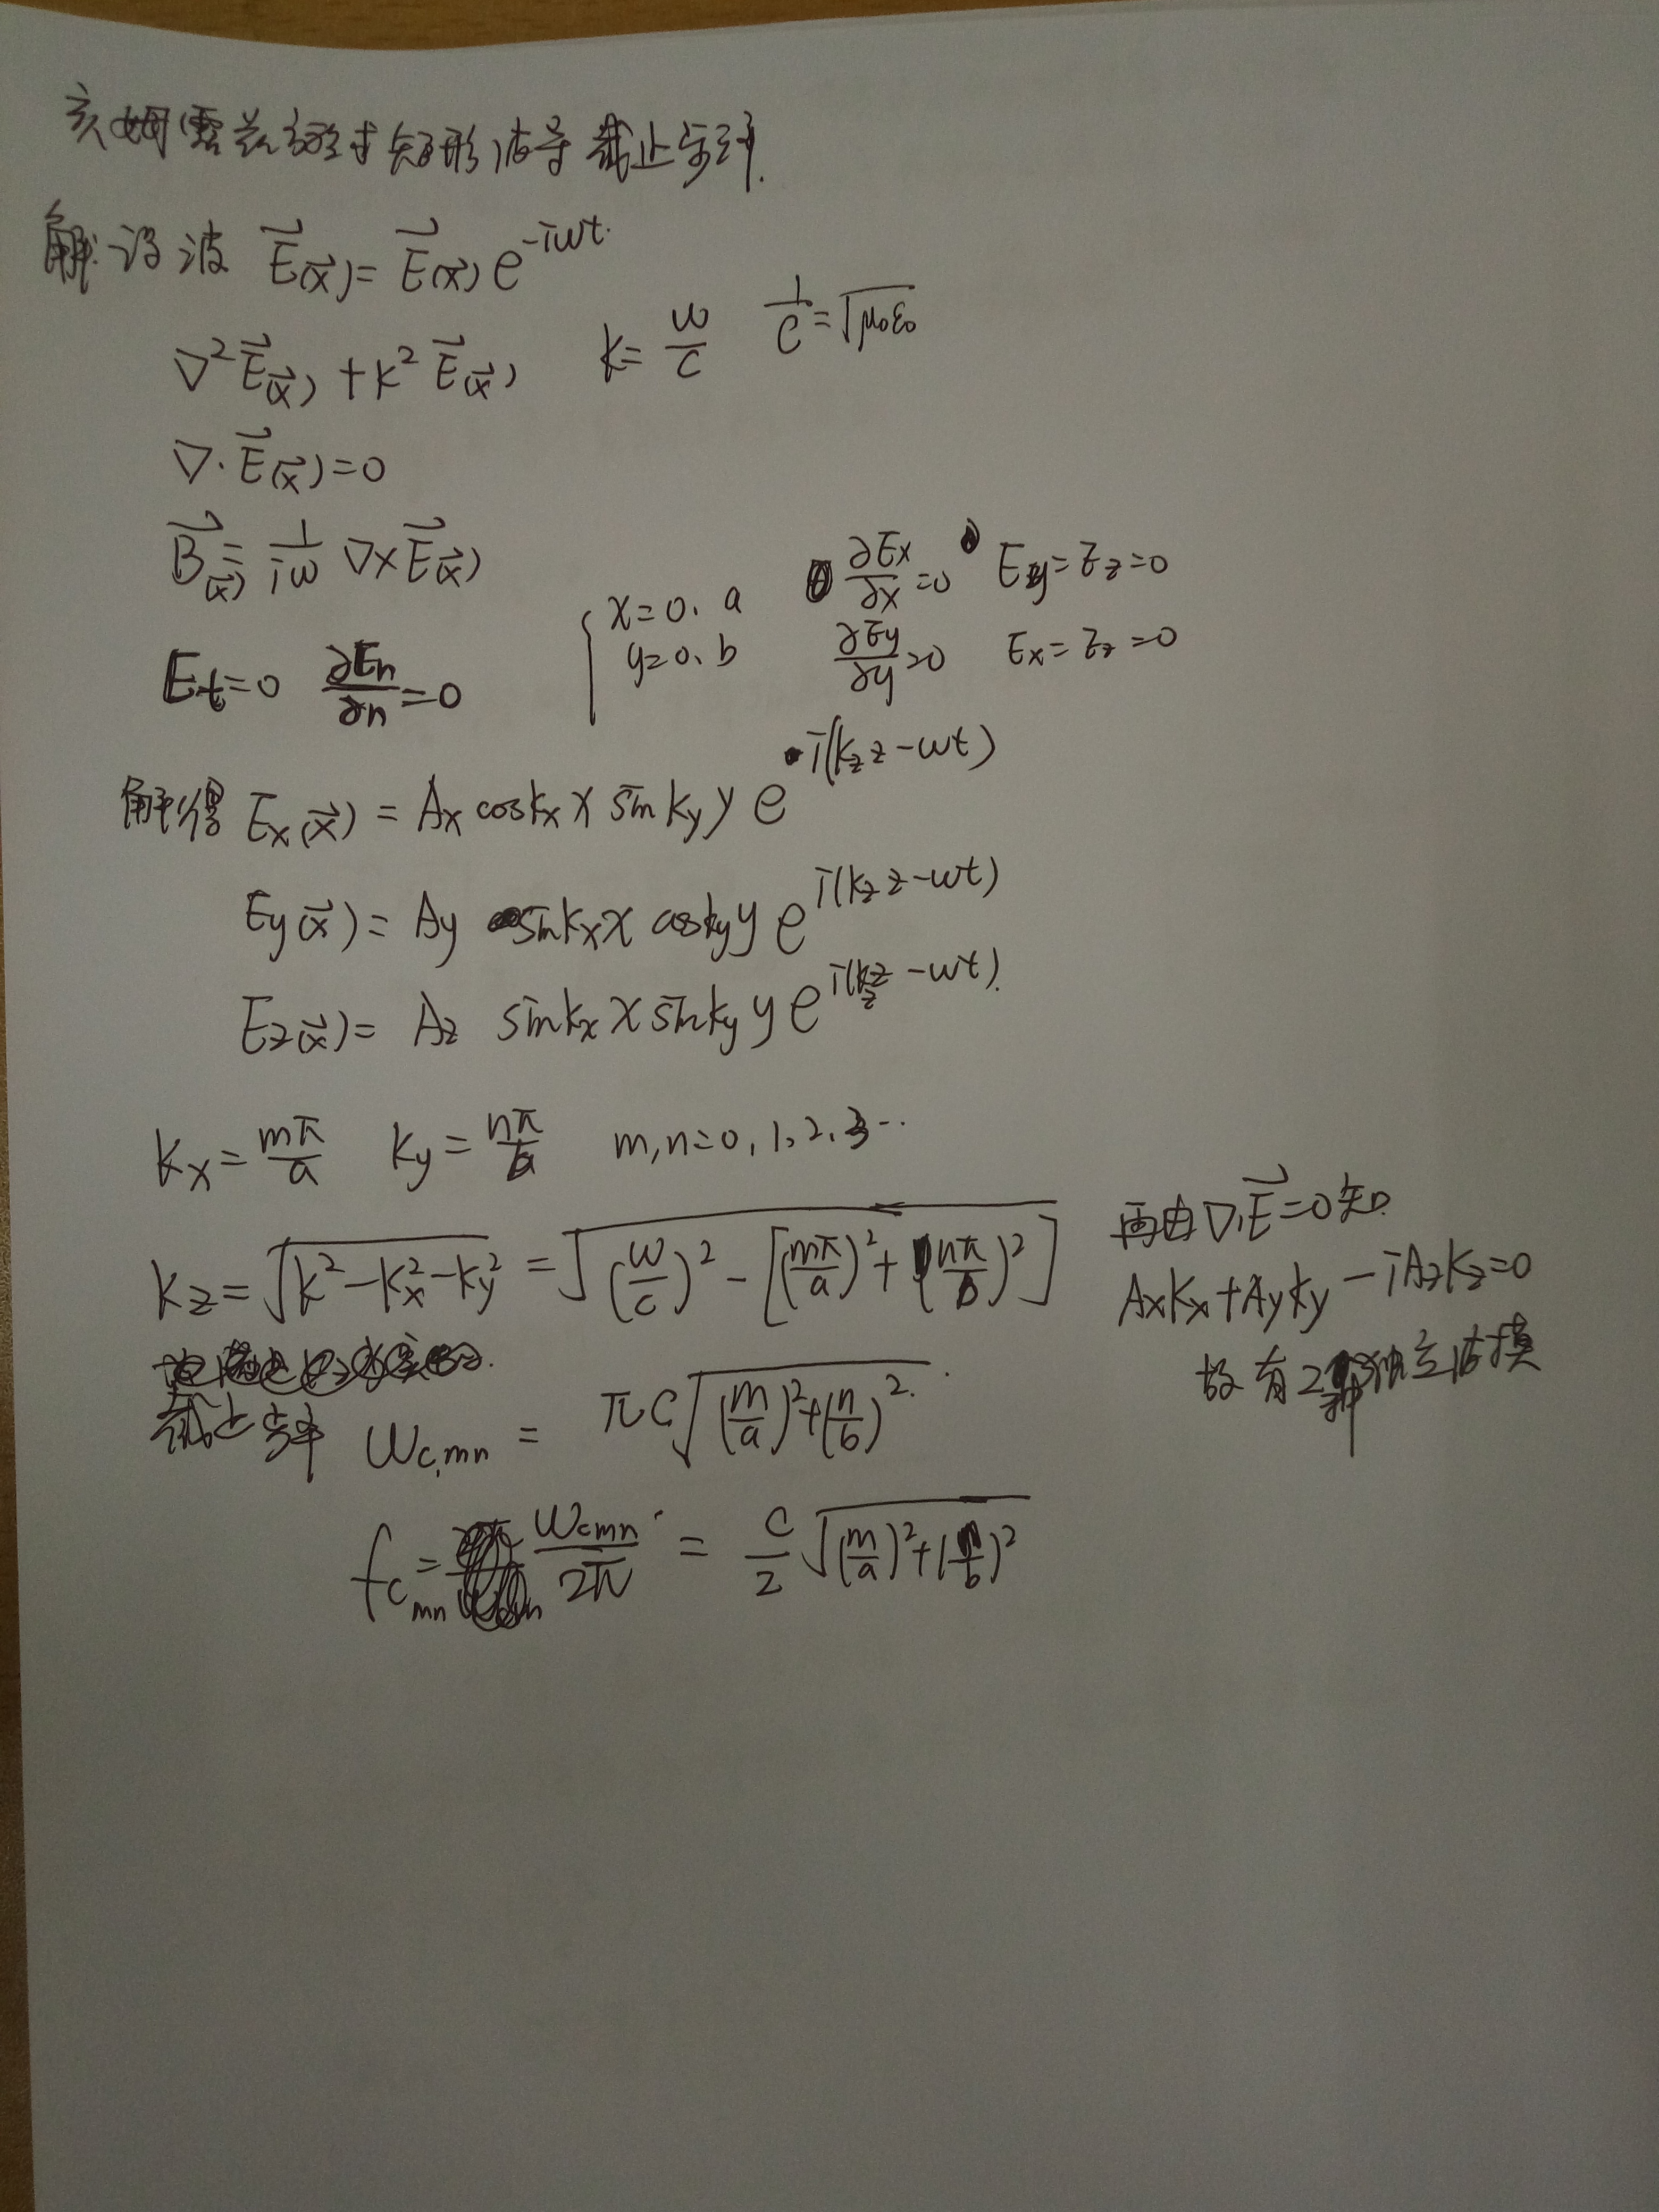 亥姆霍兹方程求矩形波导截止频率.
解:设波 $\vec{E}(\vec{x}) = \vec{E}(\vec{x}) e^{-i\omega t}$.
$\nabla^2 \vec{E}(\vec{x}) + k^2 \vec{E}(\vec{x})$ $k = \frac{\omega}{c}$ $\frac{1}{c} = \sqrt{\mu_0 \varepsilon_0}$
$\nabla \cdot \vec{E}(\vec{x}) = 0$
$\vec{B}(\vec{x}) = \frac{1}{i\omega} \nabla \times \vec{E}(\vec{x})$
$E_t = 0$ $\frac{\partial E_n}{\partial n} = 0$
{ $x = 0, a$ $\frac{\partial E_x}{\partial x} = 0$ $E_y = E_z = 0$
$y = 0, b$ $\frac{\partial E_y}{\partial y} = 0$ $E_x = E_z = 0$
解得 $E_x(\vec{x}) = A_x \cos k_x x \sin k_y y e^{i(k_z z - \omega t)}$
$E_y(\vec{x}) = A_y \sin k_x x \cos k_y y e^{i(k_z z - \omega t)}$
$E_z(\vec{x}) = A_z \sin k_x x \sin k_y y e^{i(k_z z - \omega t)}$.
$k_x = \frac{m\pi}{a}$ $k_y = \frac{n\pi}{b}$ $m, n = 0, 1, 2, 3 \cdots$
$k_z = \sqrt{k^2 - k_x^2 - k_y^2} = \sqrt{(\frac{\omega}{c})^2 - [(\frac{m\pi}{a})^2 + (\frac{n\pi}{b})^2]}$
再由 $\nabla \cdot \vec{E} = 0$ 知
$A_x k_x + A_y k_y - i A_z k_z = 0$
故有2独立波模
截止频率 $\omega_{c,mn} = \pi c \sqrt{(\frac{m}{a})^2 + (\frac{n}{b})^2}$.
$f_{c_{mn}} = \frac{\omega_{cmn}}{2\pi} = \frac{c}{2} \sqrt{(\frac{m}{a})^2 + (\frac{n}{b})^2}$